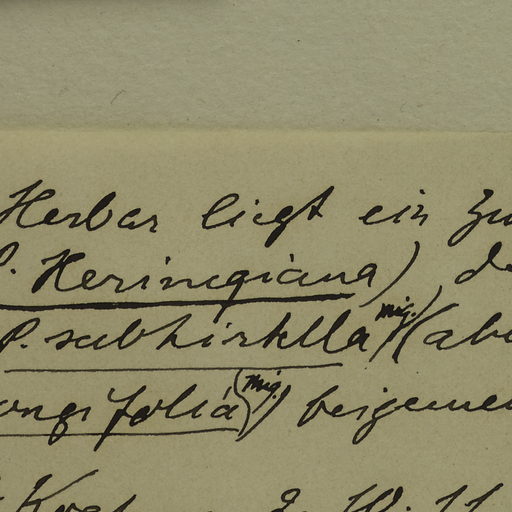 Herbar liegt ein Zu
P. Heringiana), da
P. subhirtella Mig.) (abe
ongifolia (Mig.) beigemen